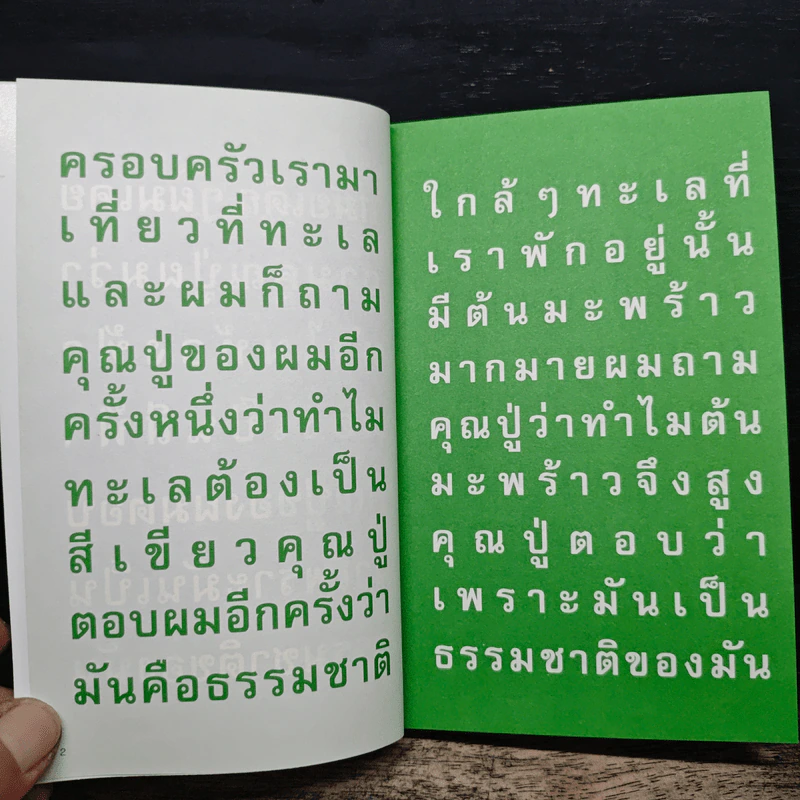 ครอบครัวเรามา
เที่ยวที่ทะเล
และผมก็ถาม
คุณปู่ของผมอีก
ครั้งหนึ่งว่าทำไม
ทะเลต้องเป็น
สีเขียวคุณปู่
ตอบผมอีกครั้งว่า
มันคือธรรมชาติ
2
ใกล้ๆทะเลที่
เราพักอยู่นั้น
มีต้นมะพร้าว
มากมายผมถาม
คุณปู่ว่าทำไมต้น
มะพร้าวจึงสูง
คุณปู่ตอบว่า
เพราะมันเป็น
ธรรมชาติของมัน